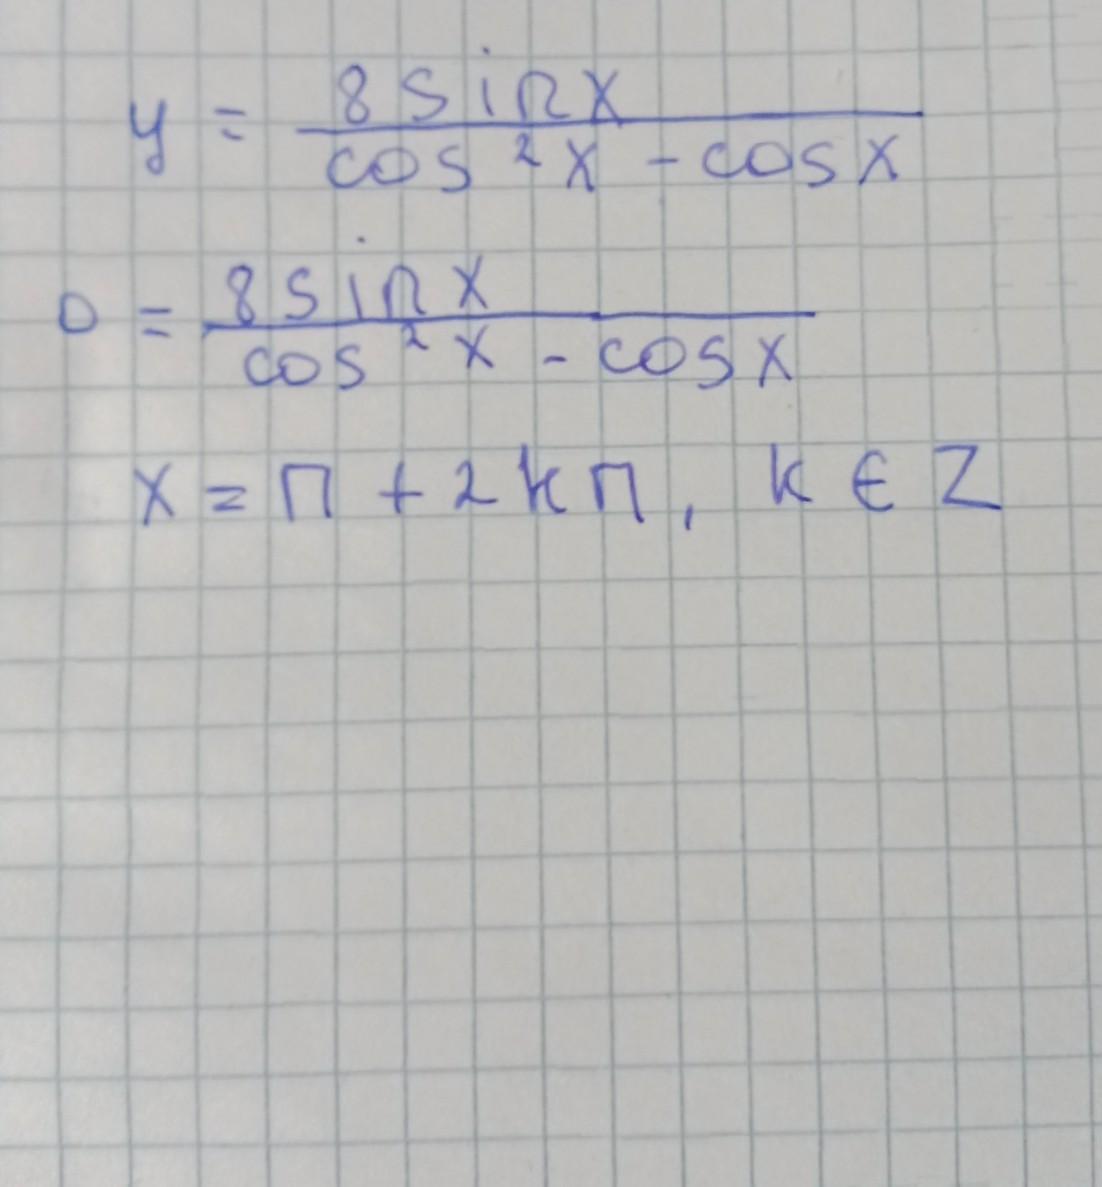 y = 8 sin x / cos ² x - cos x
0 = 8 sin x / cos ² x - cos x
x = π + 2kπ, k ∈ Z